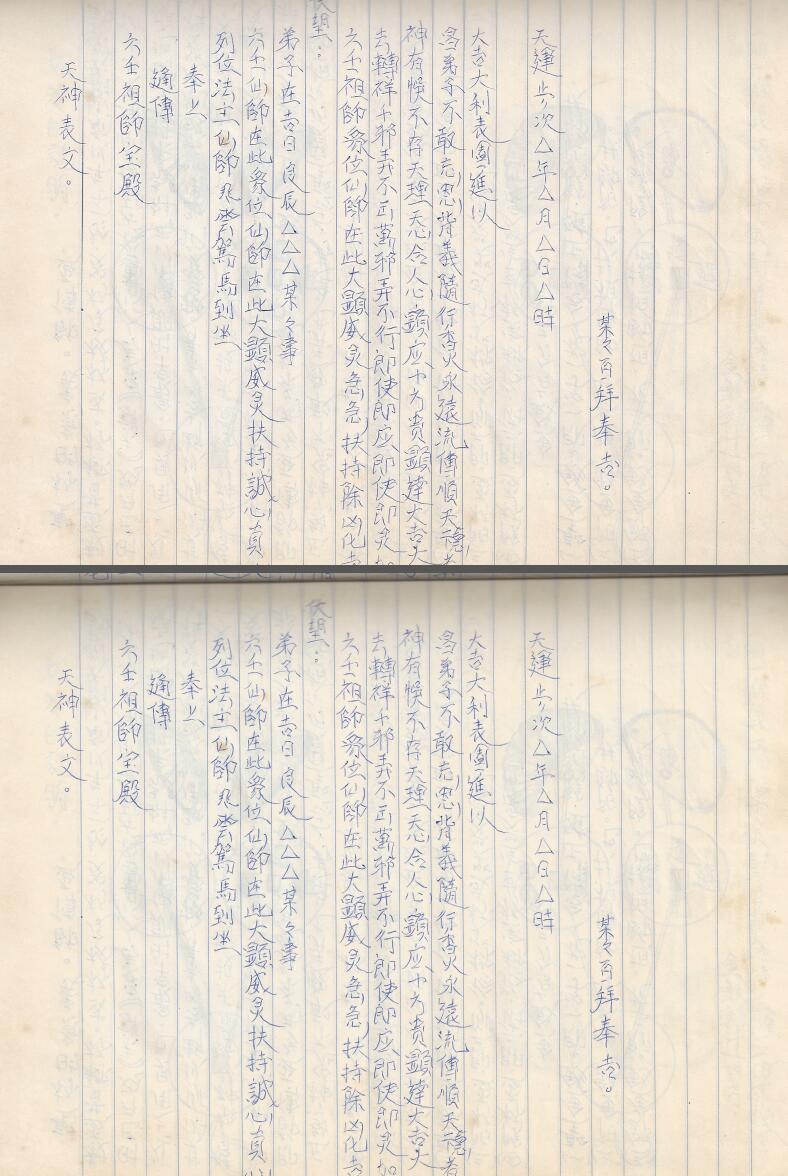 天神表文。
六壬祖師宝殿
通傳
奉上
列位法主仙師飛雲駕馬到坐
六壬仙師在此众位仙師在此大顯威灵扶持誠心真
弟子在吉日良辰△△△某々事
伏望：
六壬祖師众位仙師在此大顯威灵急急扶持除凶化吉
去轉祥千邪弄不正萬邪弄不行即使即应即使即灵如
神有悞不存天理天心合人心顯应十方貴顯達大吉大
昌弟子不敢忘恩背義隨行香火永遠流傳順天德者
大吉大利表圖進以
天運歩次△年△月△日△時
某々百拜奉告。
天神表文。
六壬祖師宝殿
通傳
奉上
列位法主仙師飛雲駕馬到坐
六壬仙師在此众位仙師在此大顯威灵扶持誠心真
弟子在吉日良辰△△△某々事
伏望：
六壬祖師众位仙師在此大顯威灵急急扶持除凶化吉
去轉祥千邪弄不正萬邪弄不行即使即应即使即灵如
神有悞不存天理天心合人心顯应十方貴顯達大吉大
昌弟子不敢忘恩背義隨行香火永遠流傳順天德者
大吉大利表圖進以
天運歩次△年△月△日△時
某々百拜奉告。